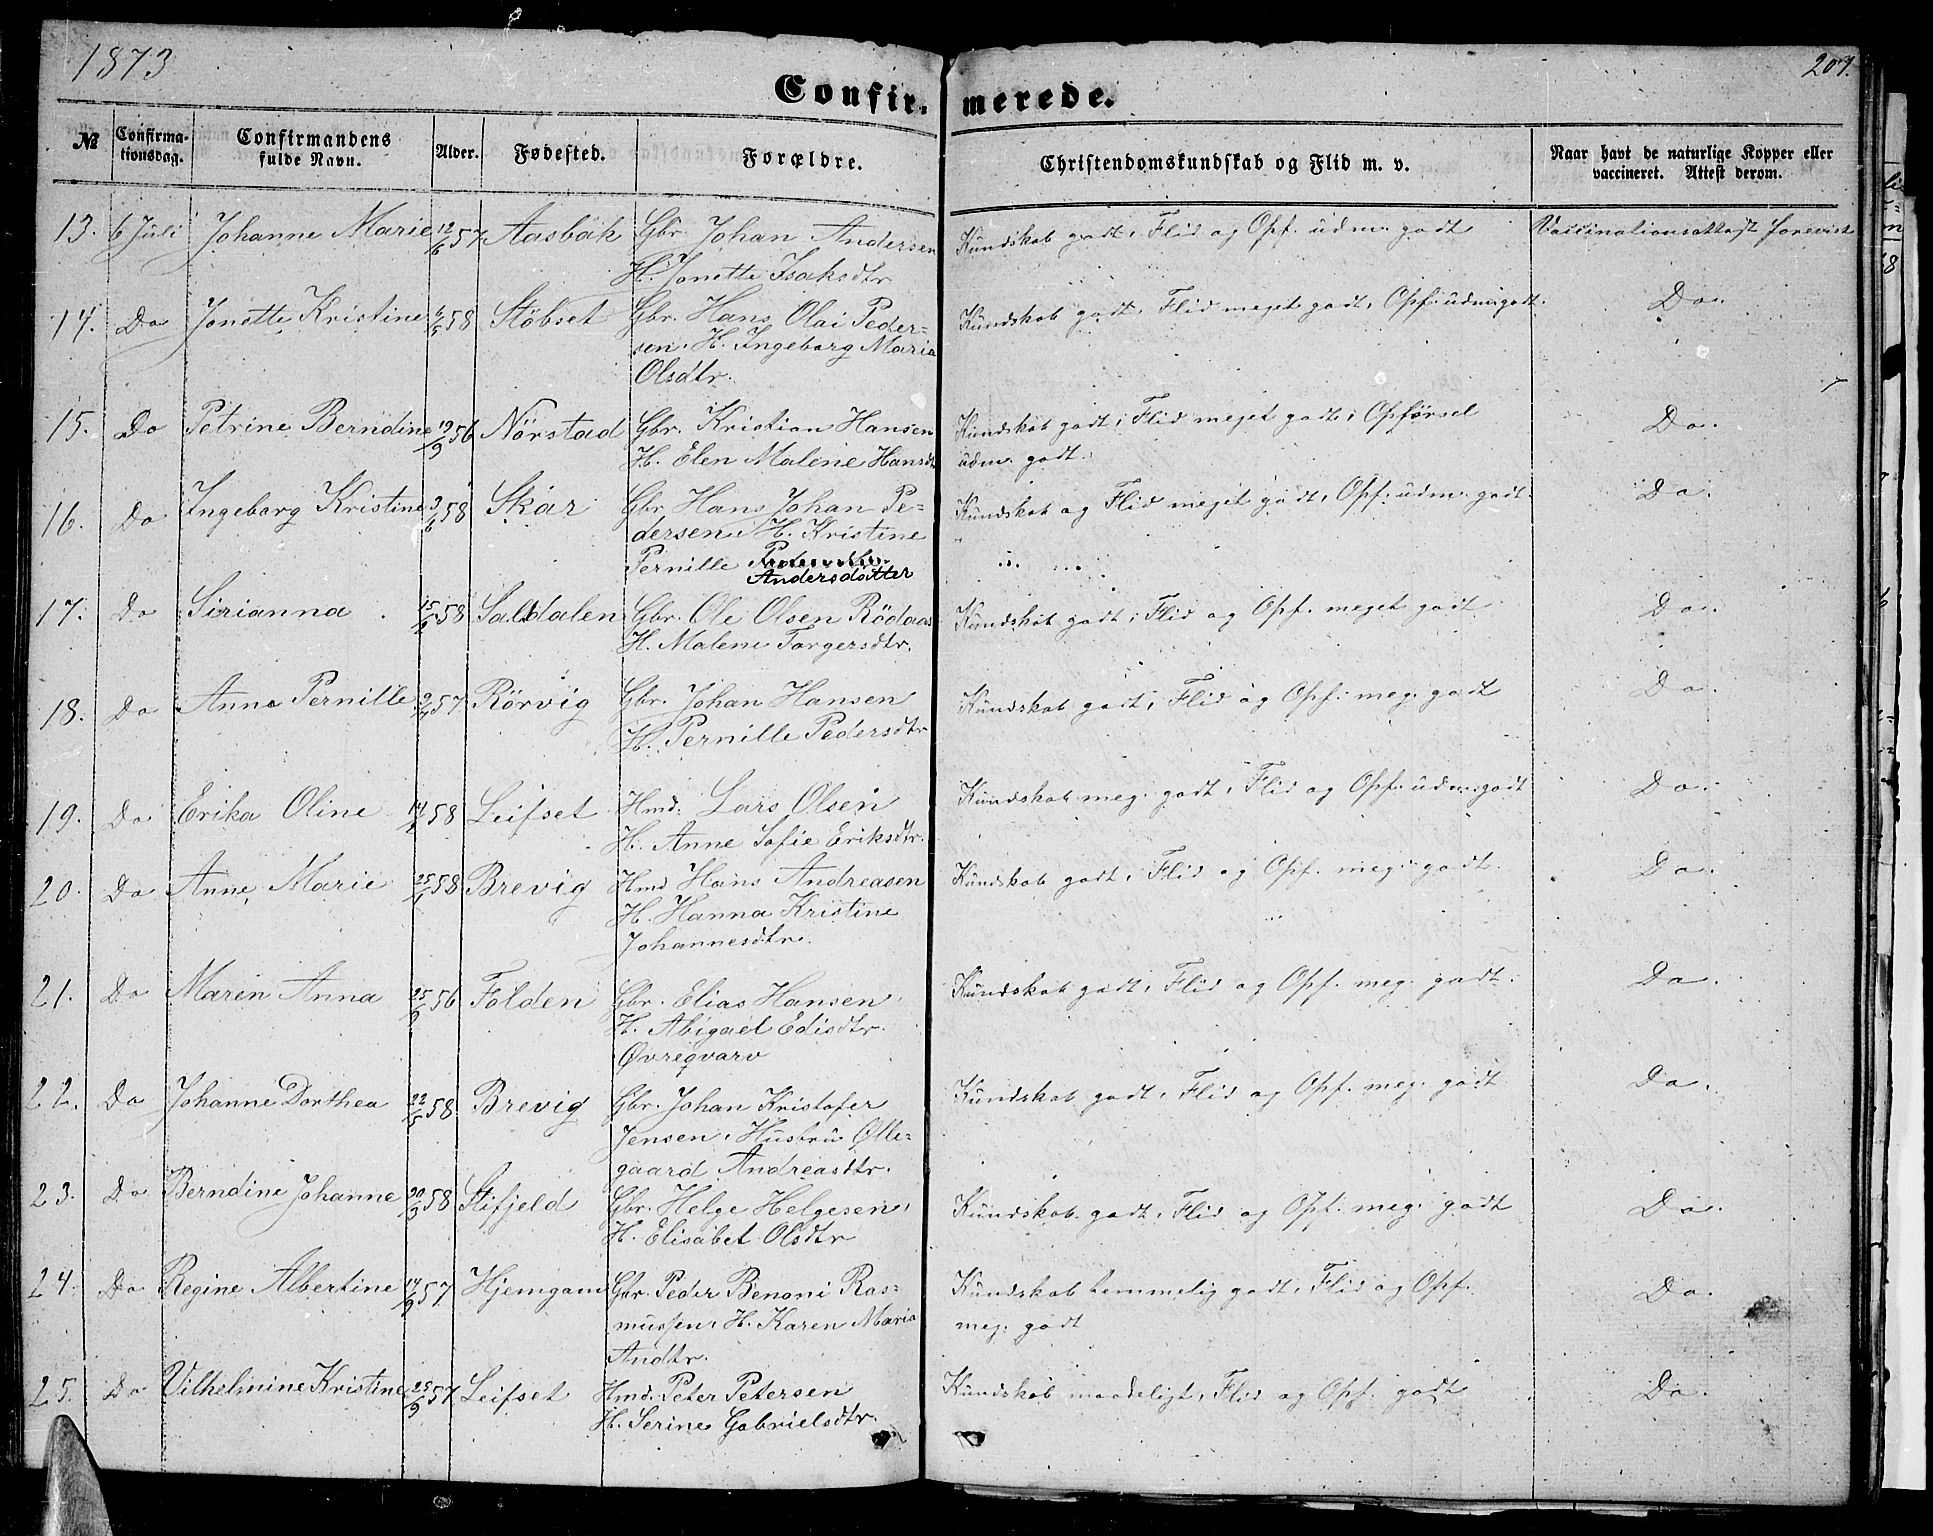 1873
207.
Confir. merede.
№ Confirma-tionsdag. Confirmandens fulde Navn. Alder. Fødested. Forældre. Christendomskundskab og Flid m. v. Naar havt de naturlige Kopper eller vaccineret. Attest derom.
13. 6 Juli Johanne Marie 12/6 57 Aasbäk Gbr. Johan Andersen Kundskab godt, Flid og Opf. udm. godt Vaccinationsattest forevist
H. Jonette Isaksdtr
14. Do Jonette Kristine 58 Støbset Gbr. Hans Olai Peder= Kundskab godt, Flid meget godt, Opf. udm. godt. Do.
sen. H. Ingeborg Maria
Olsdtr.
15. Do Petrine Berndine 19/9 56 Nörstad Gbr. Kristian Hansen Kundskab godt, Flid meget godt, Opförsel Do.
H. Elen Malene Hansdtr udm. godt.
16. Do Ingeborg Kristine 3/6 58 Skar Gbr Hans Johan Pe= Kundskab og Flid meget godt, Opf. udm. godt. Do.
dersen. H. Kristine
Pernille
Andersdatter
17. Do Sirianna 58 Saltdalen Gbr. Ole Olsen Rödaas Kundskab godt, Flid og Opf. meget godt Do.
H. Malene Torgersdtr.
18. Do Anne Pernille 57 Rörvig Gbr. Johan Hansen Kundskab godt, Flid og Opf. meg. godt Do.
H. Pernille Pedersdtr
19. Do Erika Oline 58 Leifset Hmd. Lars Olsen Kundskab meg. godt, Flid og Opf. udm. godt Do.
H. Anne Sofie Eriksdtr.
20. Do Anne Marie 25/1 58 Brevig Hmd Hans Andreasen Kundskab godt, Flid og Opf. meg. godt. Do.
H. Hanna Kristine
Johannesdtr.
21. Do Maren Anna 56 Folden Gbr. Elias Hansen Kundskab godt, Flid og Opf. meg. godt. Do.
H. Abigael Edisdtr.
Øvreqvarv
22. Do Johanne Dorthea 22/5 58. Brevig Gbr. Johan Kristofer Kundskab godt, Flid og Opf. meg. godt Do.
Jensen, Hustru Ølle=
gaard Andreasdtr.
23. Do Berndine Johanne 58 Stifjeld Gbr. Helge Helgesen, Kundskab godt, Flid og Opf. meg. godt Do.
H. Elisabet Olsdtr
24. Do Regine Albertine 14/9 57 Hjemgam Gbr. Peder Benoni Ras= Kundskab temmelig godt, Flid og Opf. Do.
mussen, H. Karen Maria meg. godt
Andtr.
25. Do Vilhelmine Kristine 25/9 57 Leifset Hmd. Peter Petersen Kundskab maadeligt, Flid og Opf. godt Do.
H. Serine Gabrielsdtr.